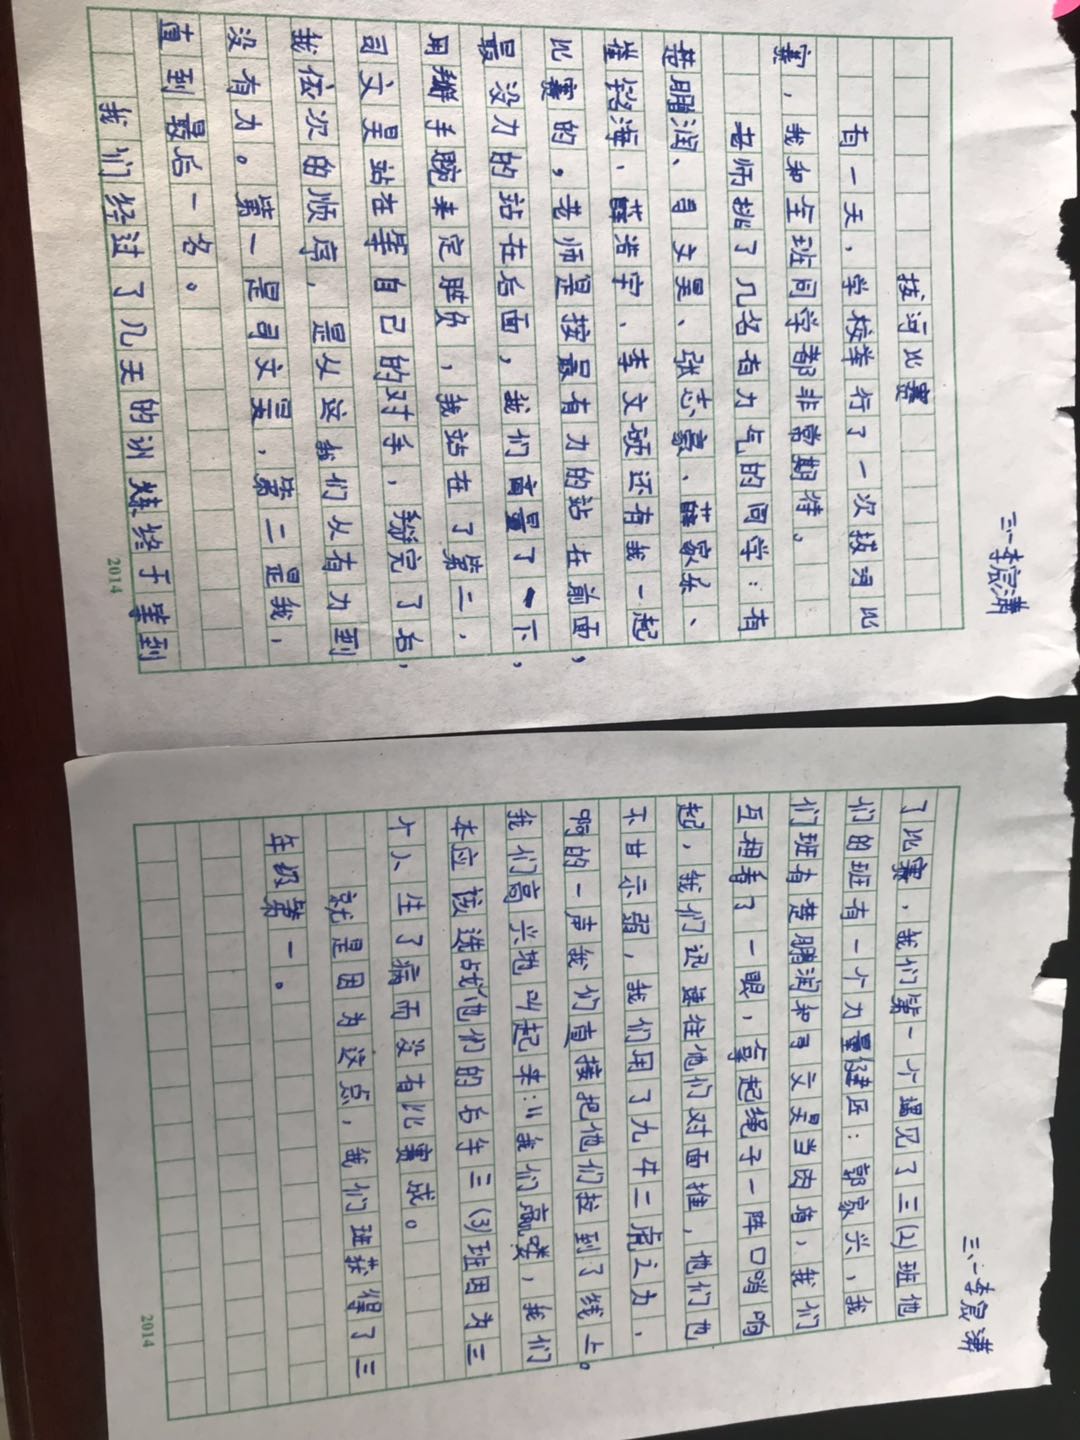 三、一李宸潇
拔河比赛
有一天，学校举行了一次拔河比
赛，我和全班同学都非常期待。
老师挑了几名有力气的同学：有
楚鹏润、司文昊、张志豪、薛家乐、
崔铭海、薛浩宇、李文硕还有我一起
比赛的，老师是按最有力的站在前面，
最没力的站在后面，我们商量了一下，
用掰手腕来定胜负，我站在了第二，
司文昊站在等自己的对手，掰完了后，
我依次的顺序，是从这我们从有力到
没有力。第一是司文昊，第二是我，
直到最后一名。
我们经过了几天的训炼终于等到
2014
三、一李宸潇
了比赛，我们第一个遇见了三(2)班他
们的班有一个力量健臣：郭家兴，我
们班有楚鹏润和司文昊当肉盾，我们
互相看了一眼，拿起绳子一阵口哨响
起，我们迅速往他们对面推，他们也
不甘示弱，我们用了九牛二虎之力，
啊的一声我们直接把他们拉到了线上。
我们高兴地叫起来:"我们赢喽，我们
本应该选战他们的后手三(3)班因为三
个人生了病而没有比赛成。
就是因为这点，我们班获得了三
年级第一。
2014